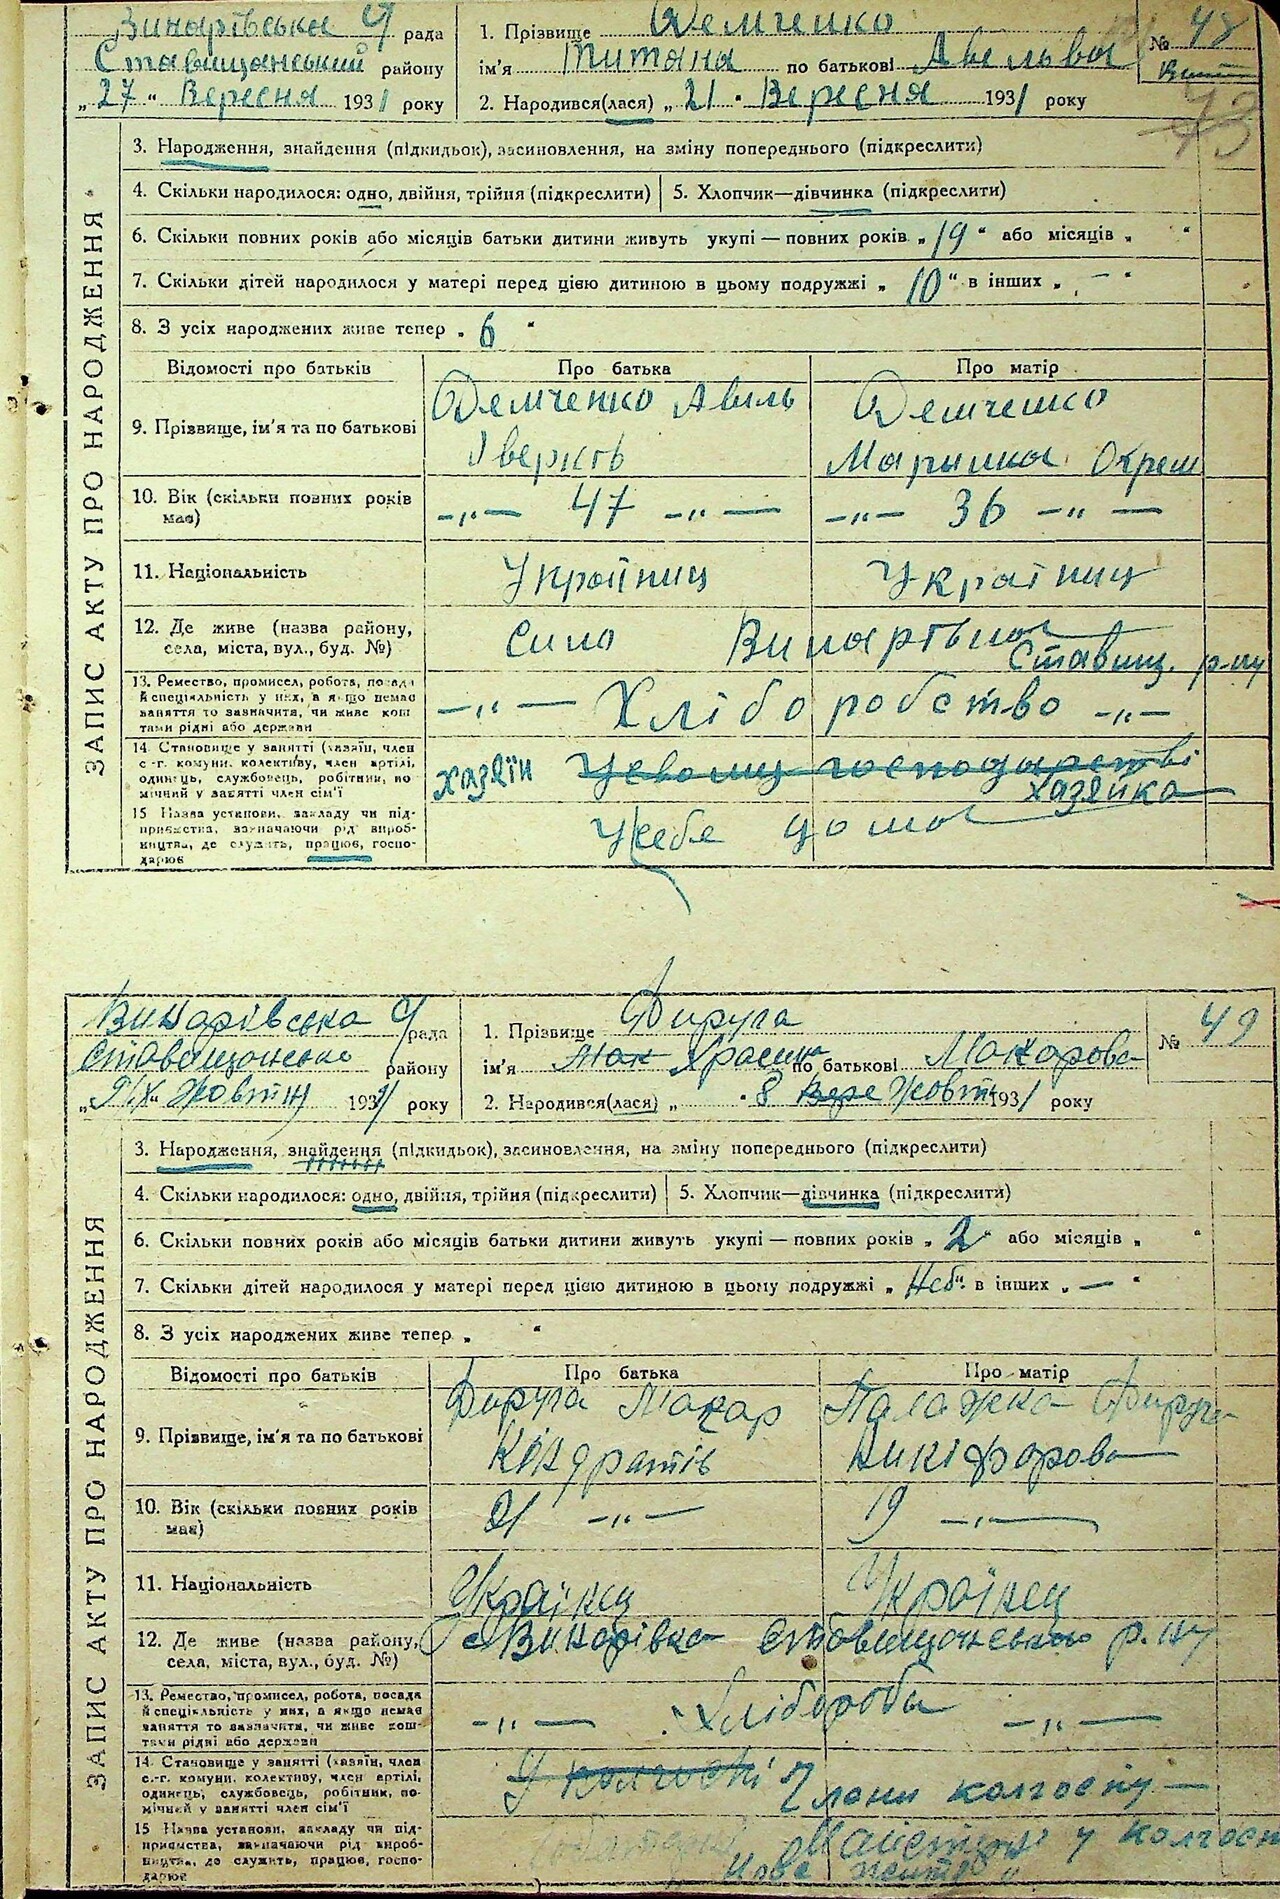 Винарівська с/рада
Ставищанський району
„27“ Вересня 1931 року
1. Прізвище Демченко
ім'я Титана по батькові Авельва
2. Народився(лася) „21“ Вересня 1931 року
№ 48
ЗАПИС АКТУ ПРО НАРОДЖЕННЯ
3. Народження, знайдення (підкидьок), засиновлення, на зміну попереднього (підкреслити)
4. Скільки народилося: одно, двійня, трійня (підкреслити)
5. Хлопчик—дівчинка (підкреслити)
6. Скільки повних років або місяців батьки дитини живуть укупі — повних років „19“ або місяців „ “
7. Скільки дітей народилося у матері перед цією дитиною в цьому подружжі „10“ в інших „ — “
8. З усіх народжених живе тепер „6“
Відомості про батьків
Про батька
Про матір
9. Прізвище, ім'я та по батькові
Демченко Авиль
Демченко
Маришка Охрем
10. Вік (скільки повних років має)
—„— 47 —„—
—„— 36 —„—
11. Національність
Україниц
Україниц
12. Де живе (назва району, села, міста, вул., буд. №)
Сило
Ставищ. р-ну
13. Ремество, промисел, робота, посада й спеціяльність у них, а якщо немає заняття то зазначити, чи живе коштами рідні або держави
—„— Хліборобство —„—
14. Становище у занятті (хазяїн, член с.-г. комуни, колективу, член артілі, одинець, службовець, робітник, помічний у занятті член сім'ї
хазяїн
господарстві
хазяйка
15 Назва установи, закладу чи підприємства, зазначаючи рід виробництва, де служить, працює, господарює
У себе дома
Винарівська с/рада
Ставищанське району
Жовтня 1931 року
1. Прізвище Фируга
ім'я Мак по батькові Макарова
2. Народився(лася) „ “ 8 Вере Жовтн 1931 року
№ 49
ЗАПИС АКТУ ПРО НАРОДЖЕННЯ
3. Народження, знайдення (підкидьок), засиновлення, на зміну попереднього (підкреслити)
4. Скільки народилося: одно, двійня, трійня (підкреслити)
5. Хлопчик—дівчинка (підкреслити)
6. Скільки повних років або місяців батьки дитини живуть укупі — повних років „2“ або місяців „ “
7. Скільки дітей народилося у матері перед цією дитиною в цьому подружжі „ “ в інших „ — “
8. З усіх народжених живе тепер „ “
Відомості про батьків
Про батька
Про матір
9. Прізвище, ім'я та по батькові
Фируга Макар
Кіндратів
Палажка Фируга
Никіфорова
10. Вік (скільки повних років має)
21 —„—
19 —„—
11. Національність
Українец
Українец
12. Де живе (назва району, села, міста, вул., буд. №)
с Винарівка Ставищанського р-ну
13. Ремество, промисел, робота, посада й спеціяльність у них, а якщо немає заняття то зазначити, чи живе коштами рідні або держави
—„— Хлібороби —„—
14. Становище у занятті (хазяїн, член с.-г. комуни, колективу, член артілі, одинець, службовець, робітник, помічний у занятті член сім'ї
У колгоспі Члени колгоспу —
15 Назва установи, закладу чи підприємства, зазначаючи рід виробництва, де служить, працює, господарює
у колгосп